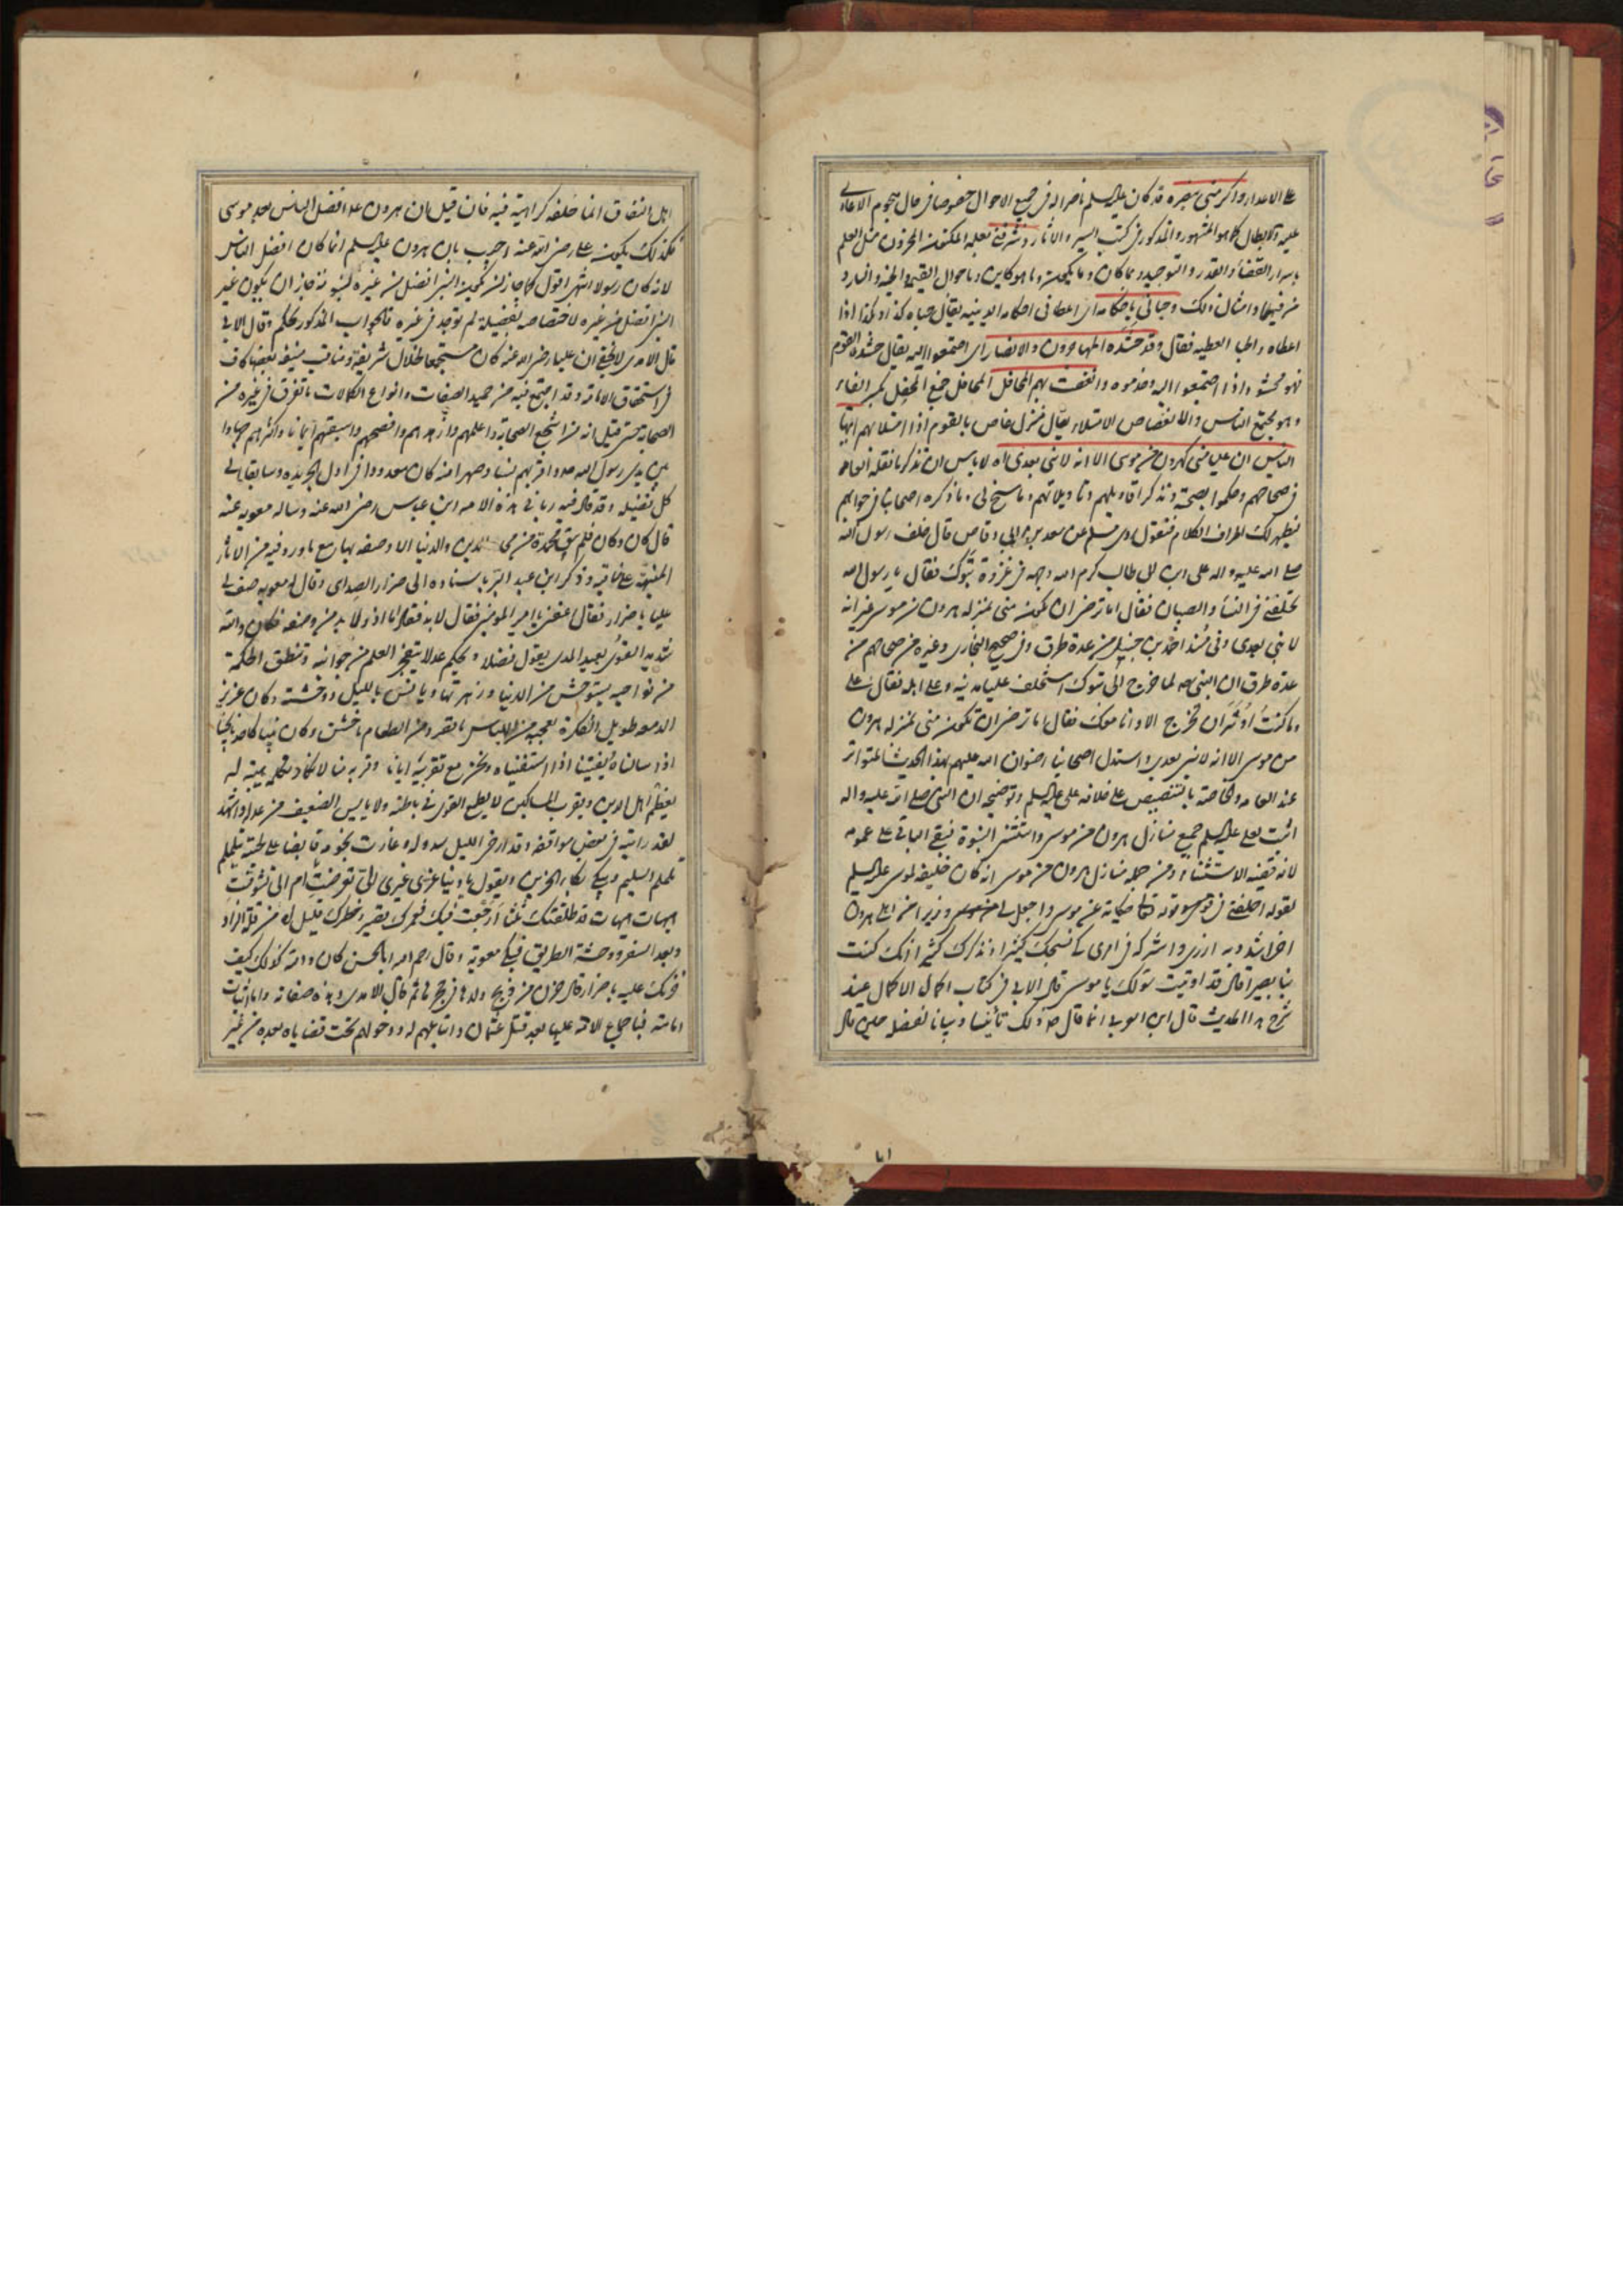 على الاعداء واكرمني بنصره قد كان عليه السلم ناصرا له في جميع الاحوال خصوصا في حال هجوم الاعادي
عليه والابطال كما هو المشهور والمذكور في كتب السير والاثار وشرفني بعلمه المكنون المخزون مثل العلم
باسرار القضاء والقدر والتوحيد وما كان وما يكون وما هو كاين وباحوال القيمة والجنة والنار و
من فيهما وامثال ذلك وحباني باحكامه اى اعطاني احكامه الدينية يقال حباه كذا وبكذا اذا
اعطاه والحبا العطية فقال وقد حشده المهاجرون والانصار اى اجتمعوا اليه يقال حشده القوم
فهو محشود اذا اجتمعوا اليه وخدموه وانغصت بهم المحافل المحافل جمع المحفل بكسر الفاء
وهو مجتمع الناس والانغصاص الامتلاء يقال منزل غاص بالقوم اذا امتلا بهم ايها
الناس ان عليا مني كهرون من موسى الا انه لا نبي بعدى اه لا باس ان نذكر ما نقله العامة
في صحاحهم وحكموا بصحته ونذكر اقاويلهم وتاويلاتهم وما سنح لى وما ذكره اصحابنا في جوابهم
ليظهر لك اطراف الكلام فنقول روى مسلم عن سعد بن ابى وقاص قال خلف رسول الله
صلى الله عليه واله على بن ابى طالب كرم الله وجهه في غزوة تبوك فقال يا رسول الله
تخلفني في النساء والصبيان فقال اما ترضى ان تكون مني بمنزلة هرون من موسى غير انه
لا نبي بعدى وفي مسند احمد بن حنبل من عدة طرق وفي صحيح البخارى وغيره من صحاحهم من
عدة طرق ان النبي صه لما خرج الى تبوك استخلف عليا في المدينة وعلى اهله فقال على
وما كنت اوثر ان تخرج الا وانا معك فقال اما ترضى ان تكون مني بمنزلة هرون
من موسى الا انه لا نبي بعدى واستدل اصحابنا رضوان الله عليهم بهذا الحديث المتواتر
عند العامة والخاصة بالتنصيص على خلافة على عليه السلم وتوضيحه ان النبي صلى الله عليه واله
اثبت لعلى عليه السلم جميع منازل هرون من موسى واستثنى النبوة فبقى الباقي على عمومه
لانه قضية الاستثناء ومن جملة منازل هرون من موسى انه كان خليفة لموسى عليه السلم
لقوله اخلفني في قومي وقوله تعالى حكاية عن موسى واجعل لى وزيرا من اهلى هرون
اخى اشدد به ازرى واشركه في امرى كى نسبحك كثيرا ونذكرك كثيرا انك كنت
بنا بصيرا قال قد اوتيت سؤلك يا موسى قال الابى في كتاب اكمال الاكمال عند
شرح هذا الحديث قال ابن العربى انما قال صه ذلك تانيسا وبيانا لفضله حين قال
اهل النفاق انما خلفه كراهية فيه فان قيل بان هرون عه افضل الناس بعد موسى
فكذلك يكون على رضي الله عنه اجيب بان هرون عليه السلم انما كان افضل الناس
لانه كان رسولا انتهى اقول كما جاز ان يكون النبي افضل من غيره لنبوته جاز ان يكون غير
النبي افضل من غيره لاختصاصه بفضيلة لم توجد في غيره فالجواب المذكور تحكم وقال الابى
قال الامدى لا يخفى ان عليا رضي الله عنه كان مستجمعا لخلال شريفة ومناقب منيفة بعضها كاف
في استحقاق الامامة وقد اجتمع فيه من حميد الصفات وانواع الكمالات ما تفرق في غيره من
الصحابة حتى قيل انه من اشجع الصحابة واعلمهم وازهدهم وافصحهم واسبقهم ايمانا واكثرهم جهادا
بين يدى رسول الله صه واقربهم نسبا وصهرا منه كان معدودا في اول الجريدة وسابقا الى
كل فضيلة وقد قال فيه ربانى هذه الامة ابن عباس رضي الله عنه وساله معوية عنه
قال كان وكان فلم يبق محمدة من محامد الدين والدنيا الا وصفه بها مع ما ورد فيه من الاثار
المنبهة على مناقبه وذكر ابن عبد البر باسناده الى ضرار الصدائى وقال له معوية صف لى
عليا يا ضرار فقال اعفني يا امير المومنين فقال لا بد فقال اما اذ ولا بد من وصفه فكان والله
شديد القوى بعيد المدى يقول فضلا ويحكم عدلا يتفجر العلم من جوانبه وتنطق الحكمة
من نواحيه يستوحش من الدنيا وزهرتها ويانس بالليل ووحشته وكان غزير
الدمعة طويل الفكرة يعجبه من اللباس ما قصر ومن الطعام ما خشن وكان فينا كاحدنا يجيبنا
اذا سالناه ويفتينا اذا استفتيناه ونحن مع تقريبه ايانا وقربه منا لا نكاد نكلمه هيبة له
يعظم اهل الدين ويقرب المساكين لا يطمع القوى في باطله ولا ياييس الضعيف من عدله واشهد
لقد رايته في بعض مواقفه وقد ارخى الليل سدوله وغارت نجومه قابضا على لحيته يتململ
تململ السليم ويبكى بكاء الحزين ويقول يا دنيا غرى غيرى الى تعرضت ام الى تشوقت
هيهات هيهات قد طلقتك ثلثا لا رجعت فيك فعمرك قصير وخطرك قليل اه من قلة الزاد
وبعد السفر ووحشة الطريق فبكى معوية وقال رحم الله ابا الحسن كان والله كذلك فكيف
حزنك عليه يا ضرار قال حزن من ذبح ولدها في حجرها ثم قال الامدى وهذه صفاته واما اثبات
امامته فباجماع الامة عليها بعد قتل عثمان واتباعهم له ودخولهم تحت قضاياه بعده من غير